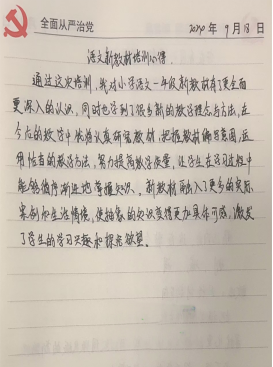 全面从严治党
2024年9月18日
语文新教材培训心得
通过这次培训,我对小学语文一年级新教材有了更全面
更深入的认识,同时也学到了很多新的教学理念与方法,在
今后的教学中我将认真研究教材,把握教材编写意图,运
用恰当的教学方法,努力提高教学质量,让学生在学习过程中
能够循序渐进地掌握知识。新教材融入了更多的实际
案例和生活情境,使抽象的知识变得更加具体可感,激发
了学生的学习兴趣和探究欲望。